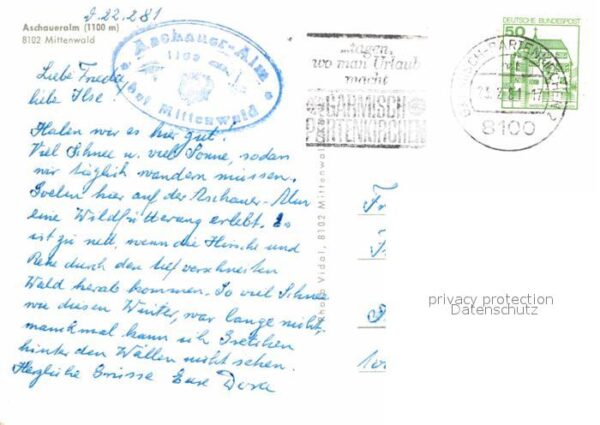 d. 22.2.81
Aschaueralm (1100 m)
8102 Mittenwald
Aschauer-Alm
1102
bei Mittenwald
...tagen,
wo man Urlaub
macht
GARMISCH
PARTENKIRCHEN
GARMISCH-PARTENKIRCHEN 2
23.2.81-17
8100
DEUTSCHE BUNDESPOST
50
Liebe Frieda
liebe Ilse!
Haben wir es hier gut!
Viel Schnee u. viel Sonne, sodaß
wir täglich wandern müssen.
Soeben hier auf der Aschauer-Alm
eine Wildfütterung erlebt. Es
ist zu nett, wenn die Hirsche und
Rehe durch den tief verschneiten
Wald herab kommen. So viel Schnee
wie diesen Winter, war lange nicht,
manchmal kann ich Gretchen
hinter den Wällen nicht sehen.
Herzliche Grüsse Eure Dora
Photo Vidal, 8102 Mittenwald
privacy protection
Datenschutz